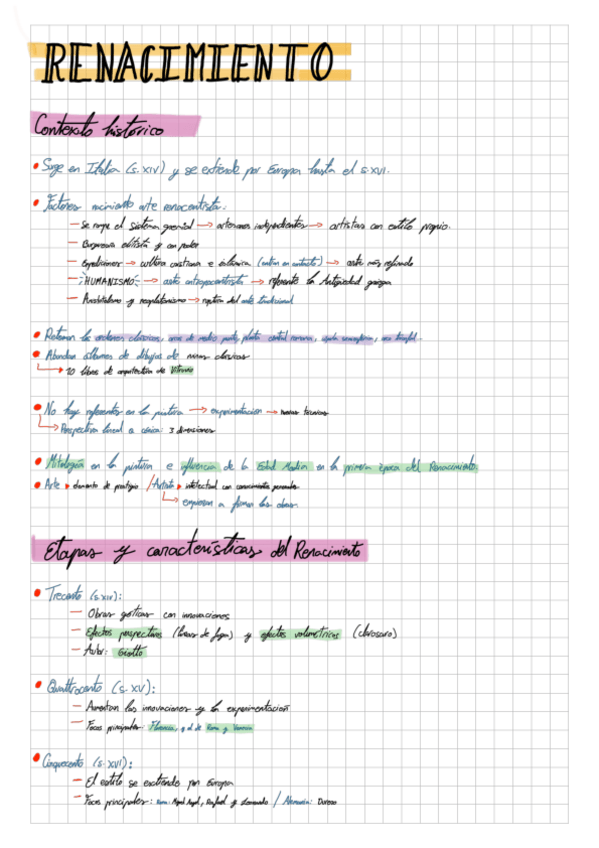 RENACIMIENTO
Contexto histórico
Surge en Italia (s. XIV) y se extiende por Europa hasta el s.XVI.
Factores nacimiento arte renacentista:
— Se rompe el sistema gremial → artesanos independientes → artistas con estilo propio.
— Burguesía elitista y con poder
— Expediciones → cultura cristiana e islámica (entran en contacto) → arte más refinado
— HUMANISMO → arte antropocentrista → referente la Antigüedad griega
— Aristotelismo y neoplatonismo → ruptura del arte tradicional
Retoman los ordenes clásicos, arco de medio punto, planta central romana, cúpula semiesférica, arco triunfal.
Abundan álbumes de dibujos de ruinas clásicas
→ 10 libros de arquitectura de Vitruvio
No hay referentes en la pintura → experimentación → nuevas técnicas
→ Perspectiva lineal o cónica: 3 dimensiones
Mitología en la pintura e influencia de la Edad Media en la primera época del Renacimiento.
Arte elemento de prestigio / Artista intelectual con conocimientos generales
→ empiezan a firmar las obras.
Etapas y características del Renacimiento
Trecento (s.XIV):
— Obras góticas con innovaciones
— Efectos perspectivos (líneas de fuga) y efectos volumétricos (claroscuro)
— Autor: Giotto
Quattrocento (s. XV):
— Aumentan las innovaciones y la experimentación
— Focos principales: Florencia, y el de Roma y Venecia
Cinquecento (s. XVI):
— El estilo se extiende por Europa
— Focos principales: Roma: Miguel Angel, Rafael y Leonardo / Alemania: Durero